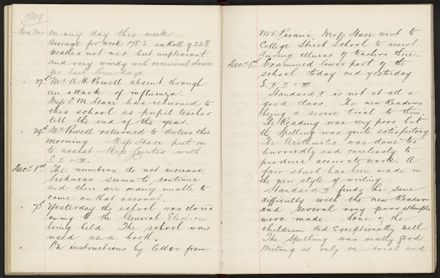 1899
Nov. 24 on any day this week.
Average for week 178.2 on Roll of 228
Weather not wet but unpleasant
and very windy
27th Mr. A. H. Powell absent through
an attack of influenza.
Miss E M. Stacr has returned to
this school as pupil teacher
till the end of the year.
29th Mr. Powell returned to duties this
morning Miss Stacr put on
to assist Miss Curtis with
S. I & II.
Dec. 1st The numbers do not increase.
Sickness seems to continue
and there are many unable to
come on that account.
7th Yesterday the school was closed
owing to the General Election
being held. The school was
used as a booth.
On instructions by letter from
Mr Pirani, Miss Stacr went to
College Street School to assist
during illness of teachers there.
Dec. 8th Examined lower part of the
school today and yesterday
S I, II & III.
Standard I is not at all a
good class. The new Readers
being a severe trial to them.
The Reading was very poor but
the Spelling was quite satisfactory.
The Arithmetic was done too
hurriedly and carelessly to
produce accurate work. A
fair start has been made in
the new style of writing.
Standard II finds the same
difficulty with the new Reader
and several very poor attempts
were made. Some of the
children did exceptionally well.
The Spelling was really good
Writing is only on trial and